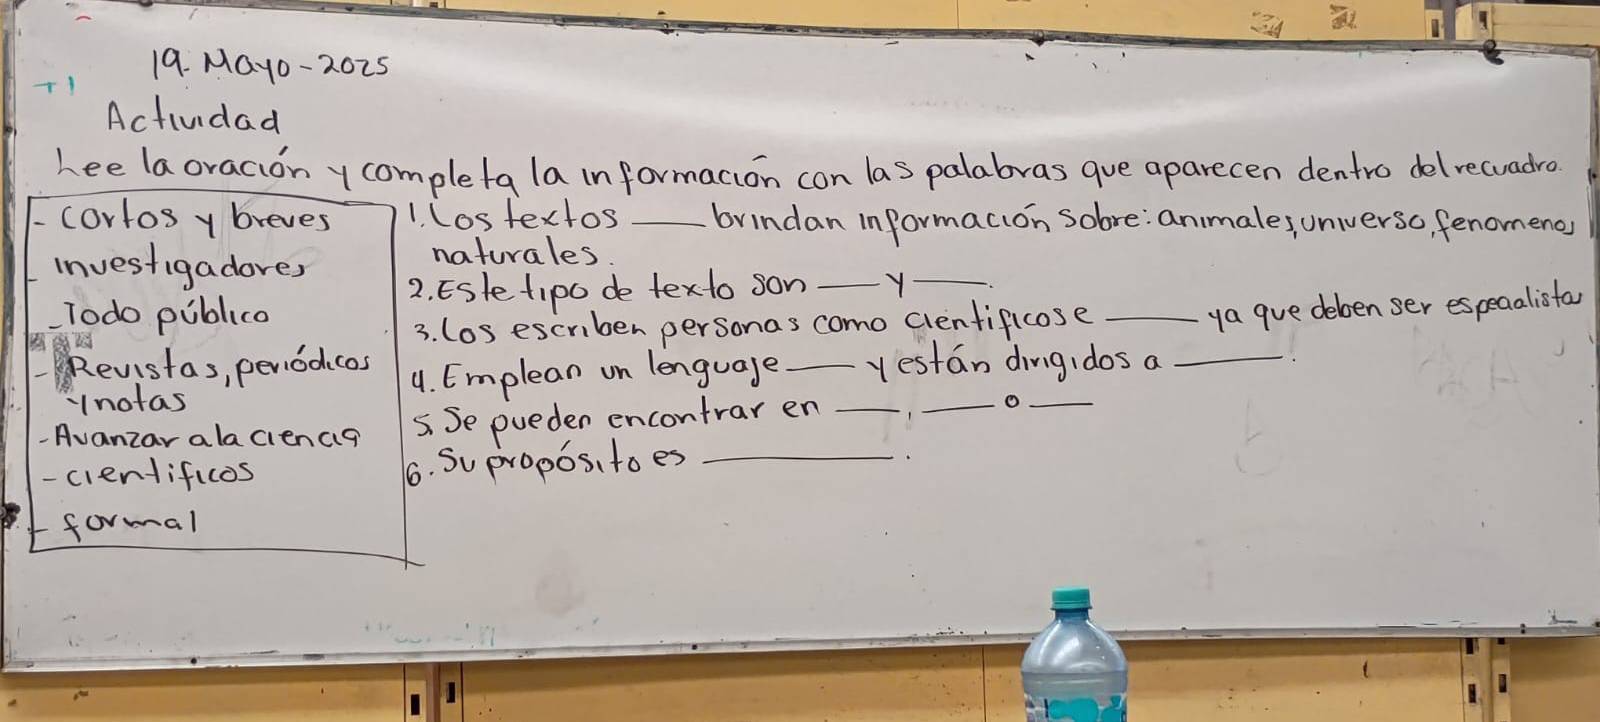 19. Mayo-2025
+1
Actividad
Lee la oración y completa la información con las palabras que aparecen dentro del recuadro.
- cortos y breves
- investigadores
- Todo público
- Revistas, periódicos
y notas
- Avanzar a la ciencia
- cientificos
- formal
1. Los textos ___ brindan información sobre: animales, universo, fenomenos
naturales.
2. Este tipo de texto son ___ y ___.
3. Los escriben personas como cientificos e ___ ya que deben ser especialistas
4. Emplean un lenguaje ___ y están dirigidos a ___.
5. Se pueden encontrar en ___, ___ o ___
6. Su propósito es ___.